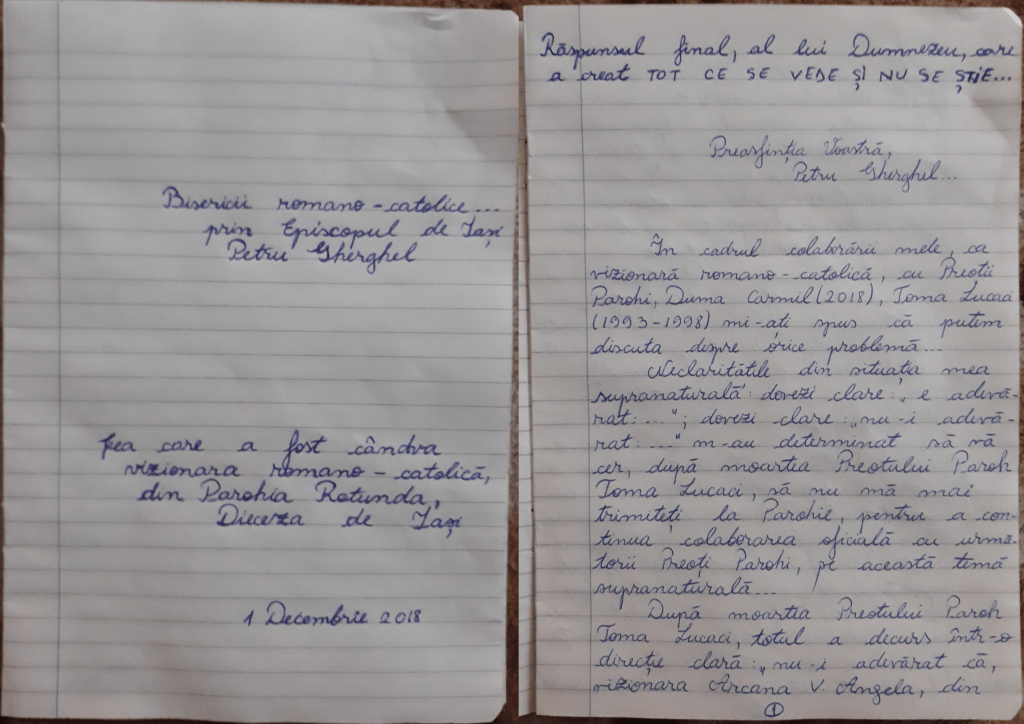 Bisericii romano-catolice...
prin Episcopul de Iași
Petru Gherghel
Cea care a fost cândva
vizionara romano-catolică,
din Parohia Rotunda,
Dieceza de Iași
1 Decembrie 2018
Răspunsul final, al lui Dumnezeu, care
a creat TOT CE SE VEDE ȘI NU SE ȘTIE...
Preasfinția Voastră,
Petru Gherghel...
În cadrul colaborării mele, ca
vizionară romano-catolică, cu Preoții
Parohi, Duma Carmil (2018), Toma Lucaci
(1993-1998) mi-ați spus că putem
discuta despre orice problemă...
Neclaritățile din situația mea
supranaturală: dovezi clare: „e adevă-
rat: ..."; dovezi clare: „nu-i adevă-
rat: ..." m-au determinat să vă
cer, după moartea Preotului Paroh
Toma Lucaci, să nu mă mai
trimiteți la Parohie, pentru a con-
tinua colaborarea oficială cu urmă-
torii Preoți Parohi, pe această temă
supranaturală...
După moartea Preotului Paroh
Toma Lucaci, totul a decurs într-o
direcție clară: „nu-i adevărat că,
vizionara Arcana V. Angela, din
1